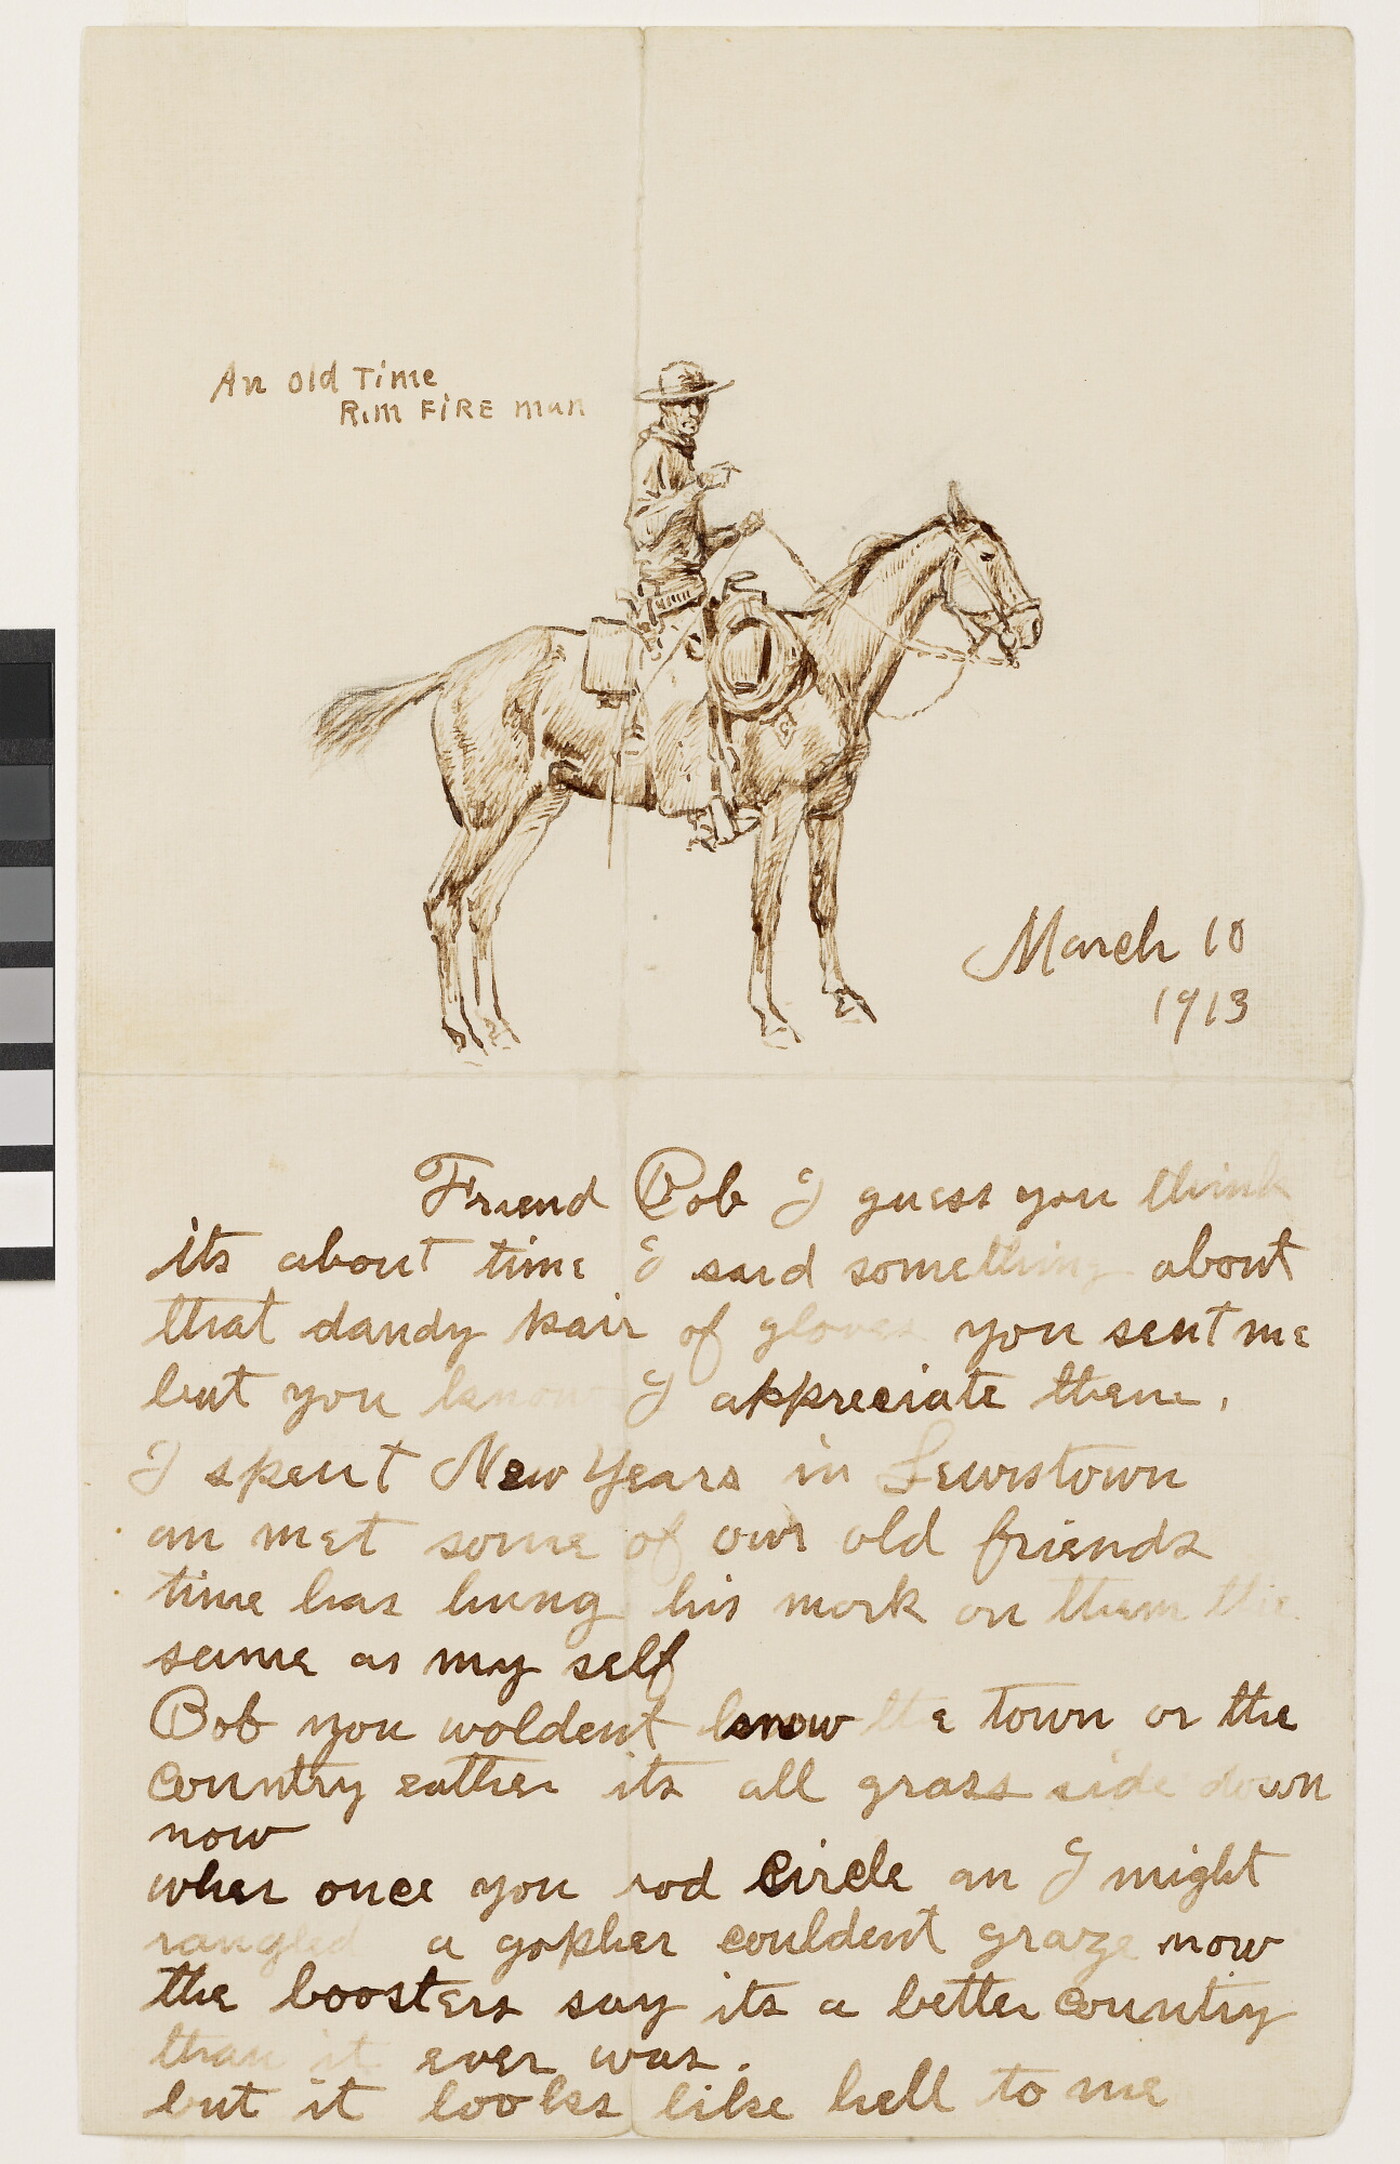 An Old Time
Rim FiRE man
March 10
1913
Friend Bob I guess you think
its about time I said something about
that dandy pair of gloves you sent me
but you know I appreciate them.
I spent New Years in Lewistown
an met some of our old friends
time has hung his mark on them the
same as my self
Bob you woldent know the town or the
country eather its all grass side down
now
wher once you rod circle an I night
rangled a gopher couldent graze now
the boosters say its a better country
than it ever was.
but it looks like hell to me